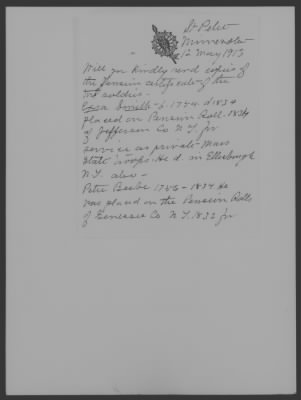 St Peter
Minnesota
12 May 1913
Will you kindly send copies of
the pension certificate of the
soldier -
Ezra Smith b. 1754 d 1834
placed on Pension Roll. 1834
of Jefferson Co N.Y. for
service as private - Mass
State troops. He d. in Ellisburgh
N.Y. also -
Peter Beebe 1746 - 1834. He
was placed on the Pension Rolls
of Genessee Co N.Y. 1832 for